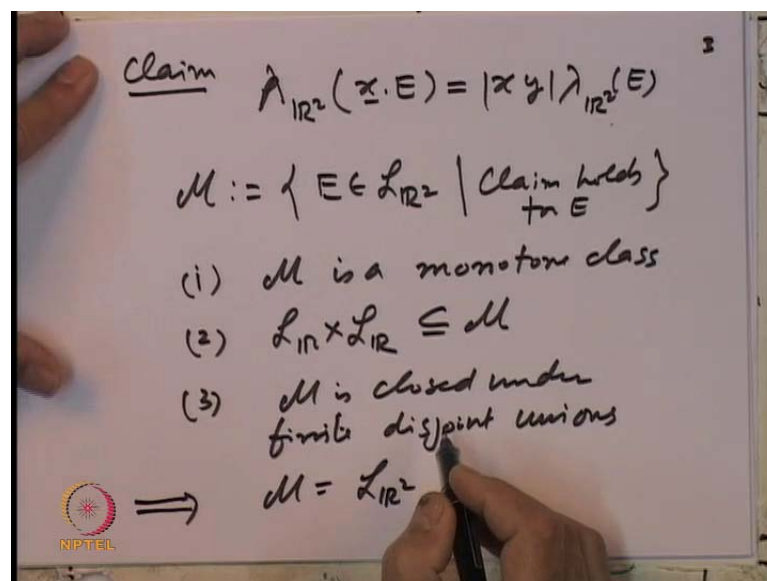 3
Claim λ_{ℝ²}(x·E) = |xy| λ_{ℝ²}(E)
ℳ := { E ∈ ℒ_{ℝ²} | Claim holds
for E }
(i) ℳ is a monotone class
(2) ℒ_{ℝ} × ℒ_{ℝ} ⊆ ℳ
(3) ℳ is closed under
finite disjoint unions
⟹ ℳ = ℒ_{ℝ²}
NPTEL